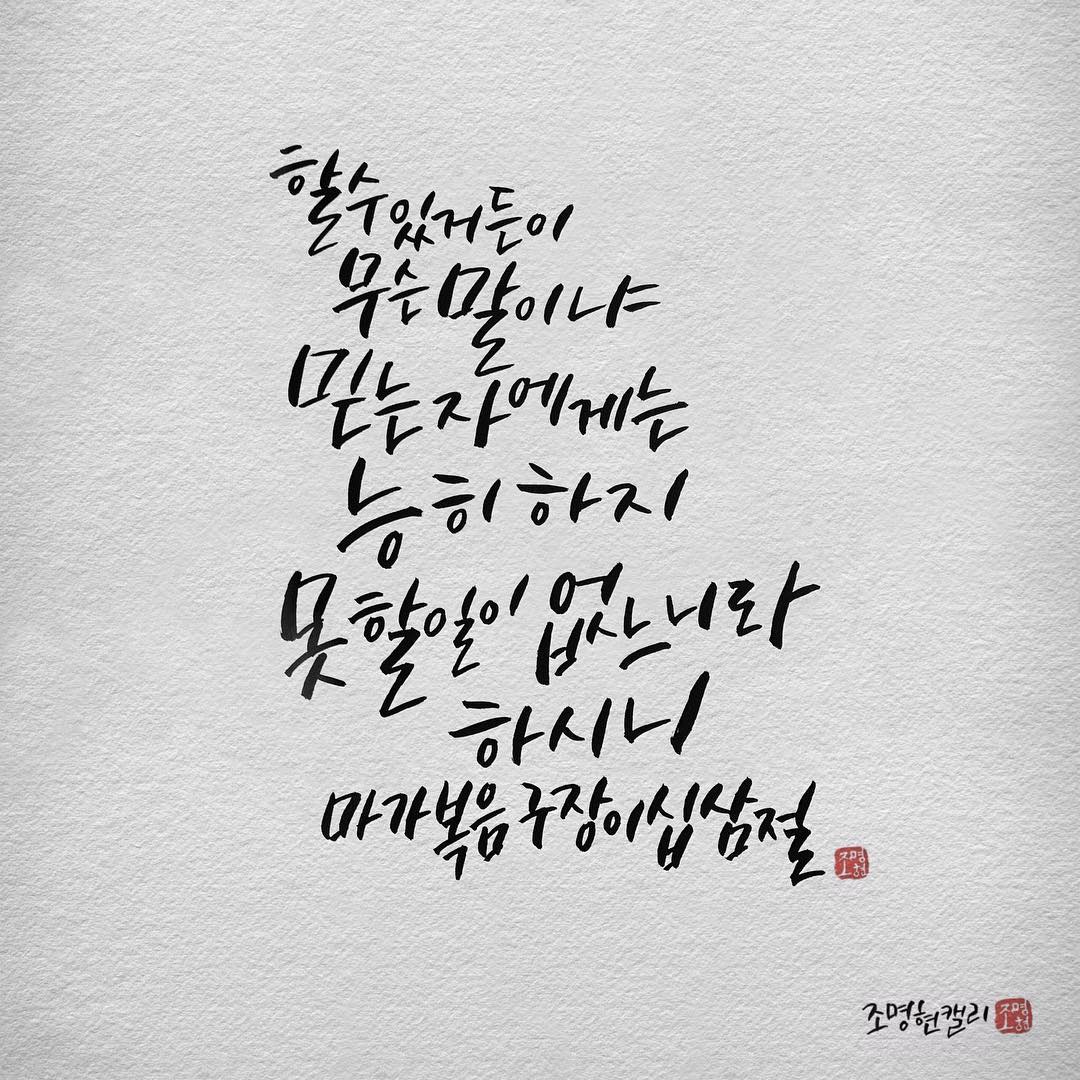 할 수 있거든이
무슨 말이냐
믿는 자에게는
능히 하지
못할 일이 없느니라
하시니
마가복음 구장 이십삼절
조명현
조명현캘리
조명현